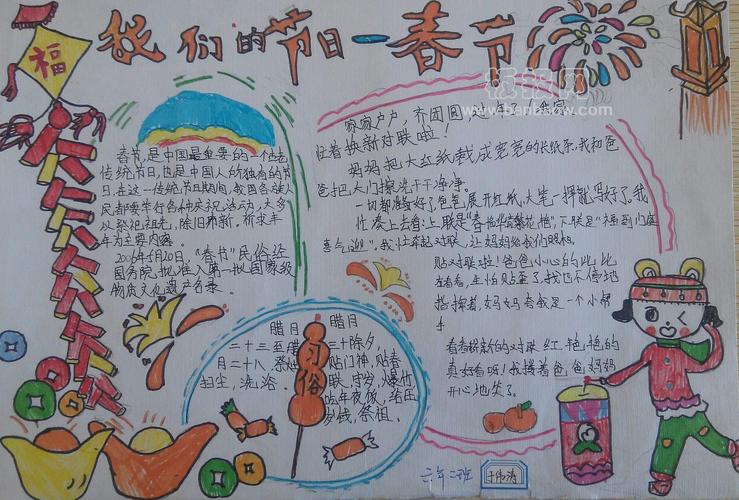 我们的节日—春节
福
板报网
www.banbaow.com
春节,是中国最重要的一个古老
传统节日,也是中国人所独有的节
日,在这一传统节日期间,我国各族人
民都要举行各种庆祝活动,大多
以祭祀祖先,除旧布新,祈求丰
年为主要内容。
2006年5月20日,"春节"民俗经
国务院批准入第一批国家级
物质文化遗产名录。
家家户户,齐团圆,过年了,我家
忙着换新对联啦!
妈妈把大红纸裁成宽宽的长纸条,我和爸
爸把大门擦洗干干净净。
一切都准备好了爸爸展开红纸,大笔一挥就写好了。我
忙凑上去看:上联是"春
喜气
",我忙举起对联,让妈妈给我们照相。
贴对联啦!爸爸小心的比比
左看看,生怕贴歪了,我也不停地
指挥着,妈妈夸我是一个小帮
手
看着崭新的对联红艳艳的
真好看呀!我搂着爸爸妈妈
开心地笑了。
习俗
腊月
二十三至腊
月二十八 祭灶
扫尘,洗浴。
腊月
三十除夕,
贴门神,贴春
联,守岁,爆竹
吃年夜饭,给压
岁钱,祭祖。
三年二班
于伟涛